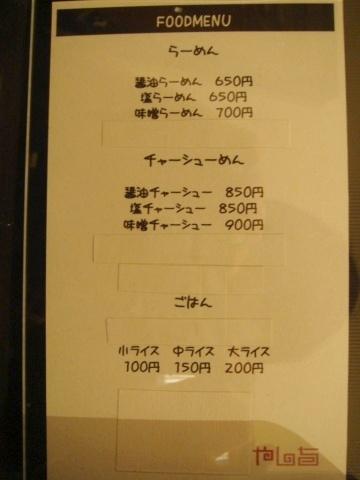 FOODMENU
らーめん
醤油らーめん 650円
塩らーめん 650円
味噌らーめん 700円
チャーシューめん
醤油チャーシュー 850円
塩チャーシュー 850円
味噌チャーシュー 900円
ごはん
小ライス 中ライス 大ライス
100円 150円 200円